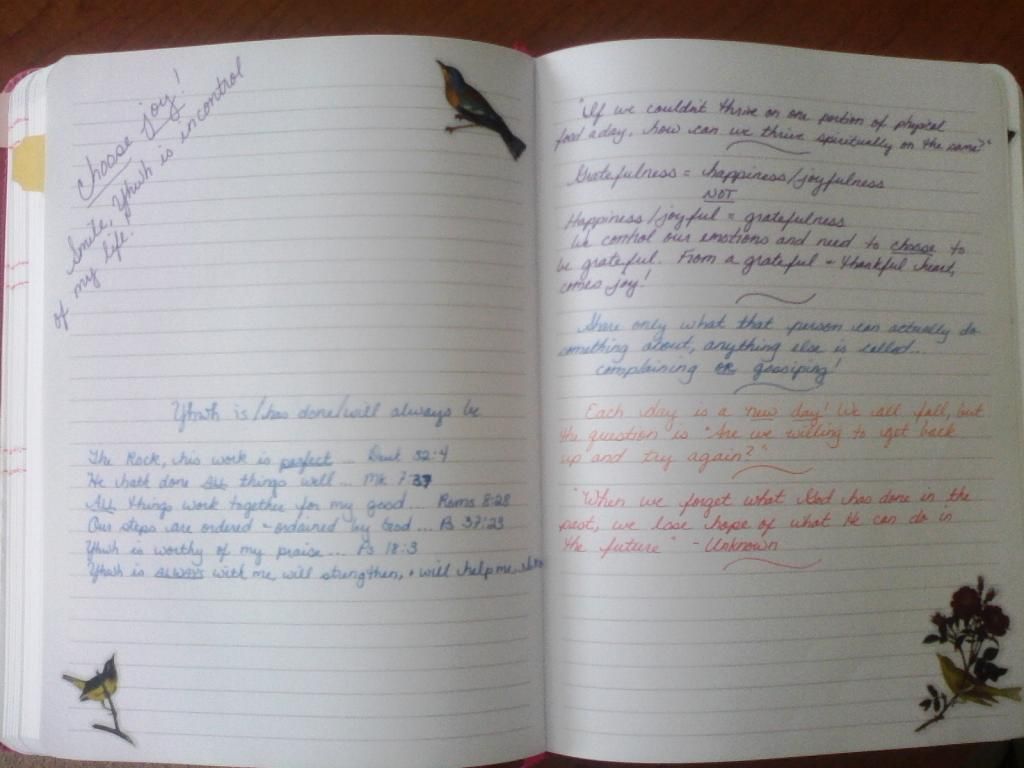 Choose joy!
Smile, Yhwh is in control
of my life.
Yhwh is/has done/will always be
The Rock, his work is perfect... Deut 32:4
He hath done ALL things well... Mk 7:37
ALL things work together for my good... Roms 8:28
Our steps are ordered - ordained by God... Ps 37:23
Yhwh is worthy of my praise... Ps 18:3
Yhwh is ALWAYS with me, will strengthen, + will help me
"If we couldn't thrive on one portion of physical
food a day, how can we thrive spiritually on the same?"
Gratefulness = happiness/joyfulness
NOT
Happiness/joyful = gratefulness
We control our emotions and need to choose to
be grateful. From a grateful - thankful heart,
comes joy!
Share only what that person can actually do
something about, anything else is called...
complaining OR gossiping!
Each day is a new day! We all fall, but
the question is "Are we willing to get back
up and try again?"
"When we forget what God has done in the
past, we lose hope of what He can do in
the future" - Unknown